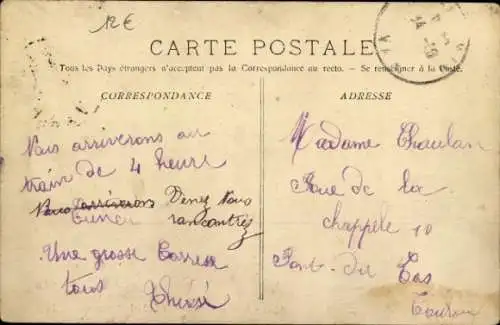 12€
CARTE POSTALE
Tous les Pays étrangers n'acceptent pas la Correspondance au recto. — Se renseigner à la Poste.
CORRESPONDANCE
ADRESSE
Nous arriverons au
train de 4 heure
Nous arriverons Venez Nous
rancontrez
Une grosse
tous Thérèse
Madame
Rue de la
chappele 10
Pont-du Cas